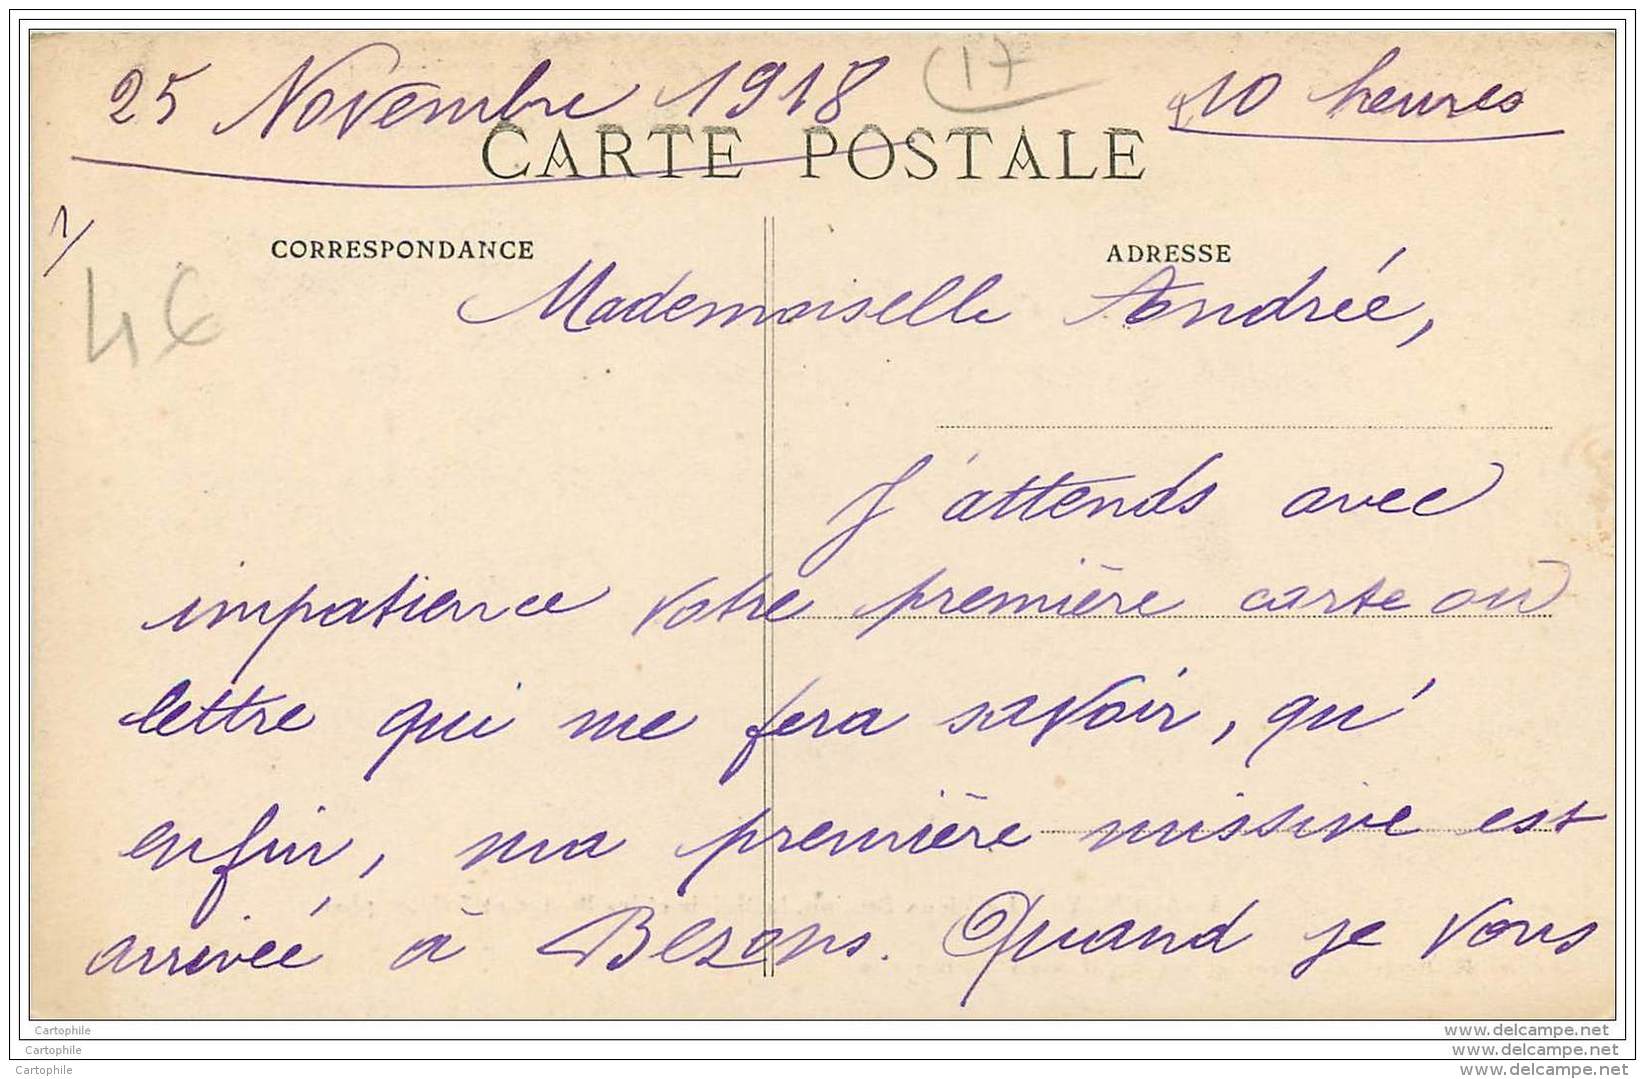 25 Novembre 1918 (17 10 heures
CARTE POSTALE
1/
CORRESPONDANCE ADRESSE
4€
Mademoiselle Andrée,
J'attends avec
impatience votre première carte ou
lettre qui me fera savoir, qu'
enfin, ma première missive est
arrivée à Bezons. Quand je vous
Cartophile
Cartophile
Cartophile
www.delcampe.net
www.delcampe.net
www.delcampe.net